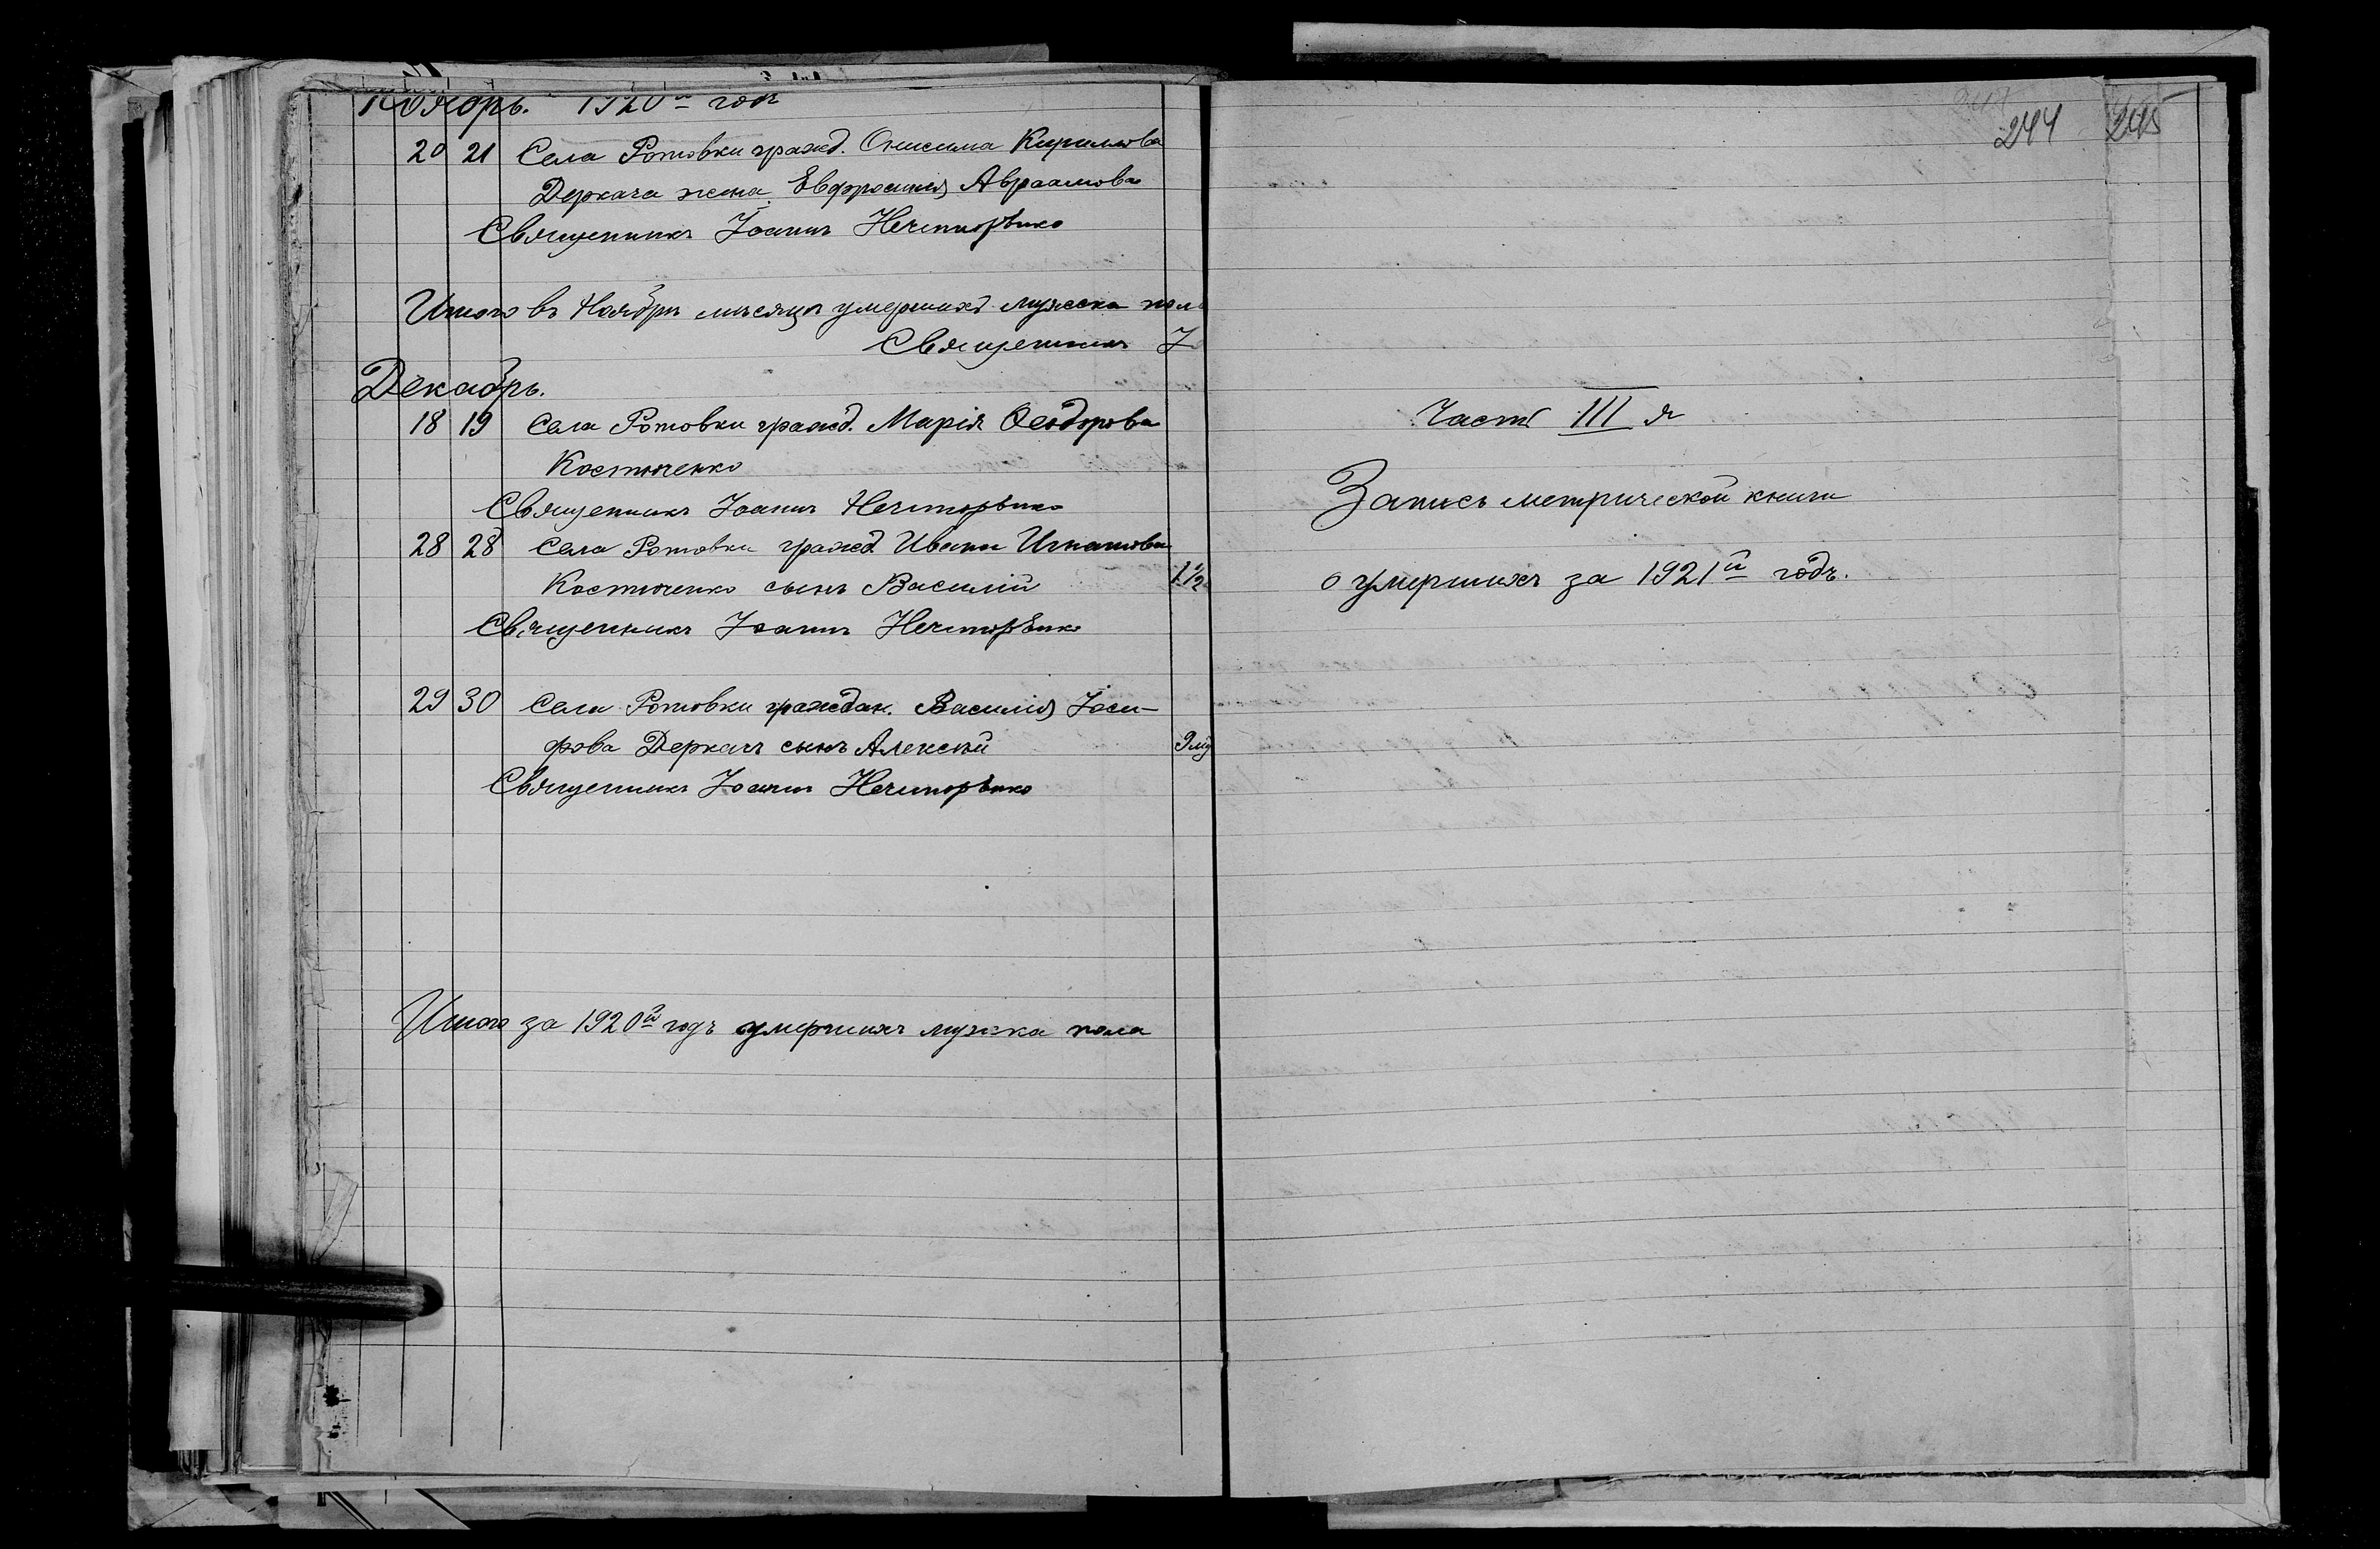 Ноябрь. 1920й годъ
20 21 Села Ротовки гражд. Онисима Кирилова
Деркача жена Евфросинія Авраамова
Священникъ Іоаннъ Нечипорѣнко
Итого въ Ноябрѣ мѣсяцѣ умершихъ мужска пол
Священникъ І
Декабрь.
18 19 Села Ротовки гражд. Марія Ѳеодорова
Костюченко
Священникъ Іоаннъ Нечипорѣнко
28 28 Села Ротовки гражд Ивана Игнатова
Костюченко сынъ Василій 1 1/2
Священникъ Іоаннъ Нечипорѣнко
29 30 Села Ротовки граждан. Василія Іоси-
фова Деркачъ сынъ Алексѣй 9
Священникъ Іоаннъ Нечипорѣнко
Итого за 1920й годъ умершихъ мужска пола
244 245
Часть III я
Запись метрической книги
о умершихъ за 1921й годъ.